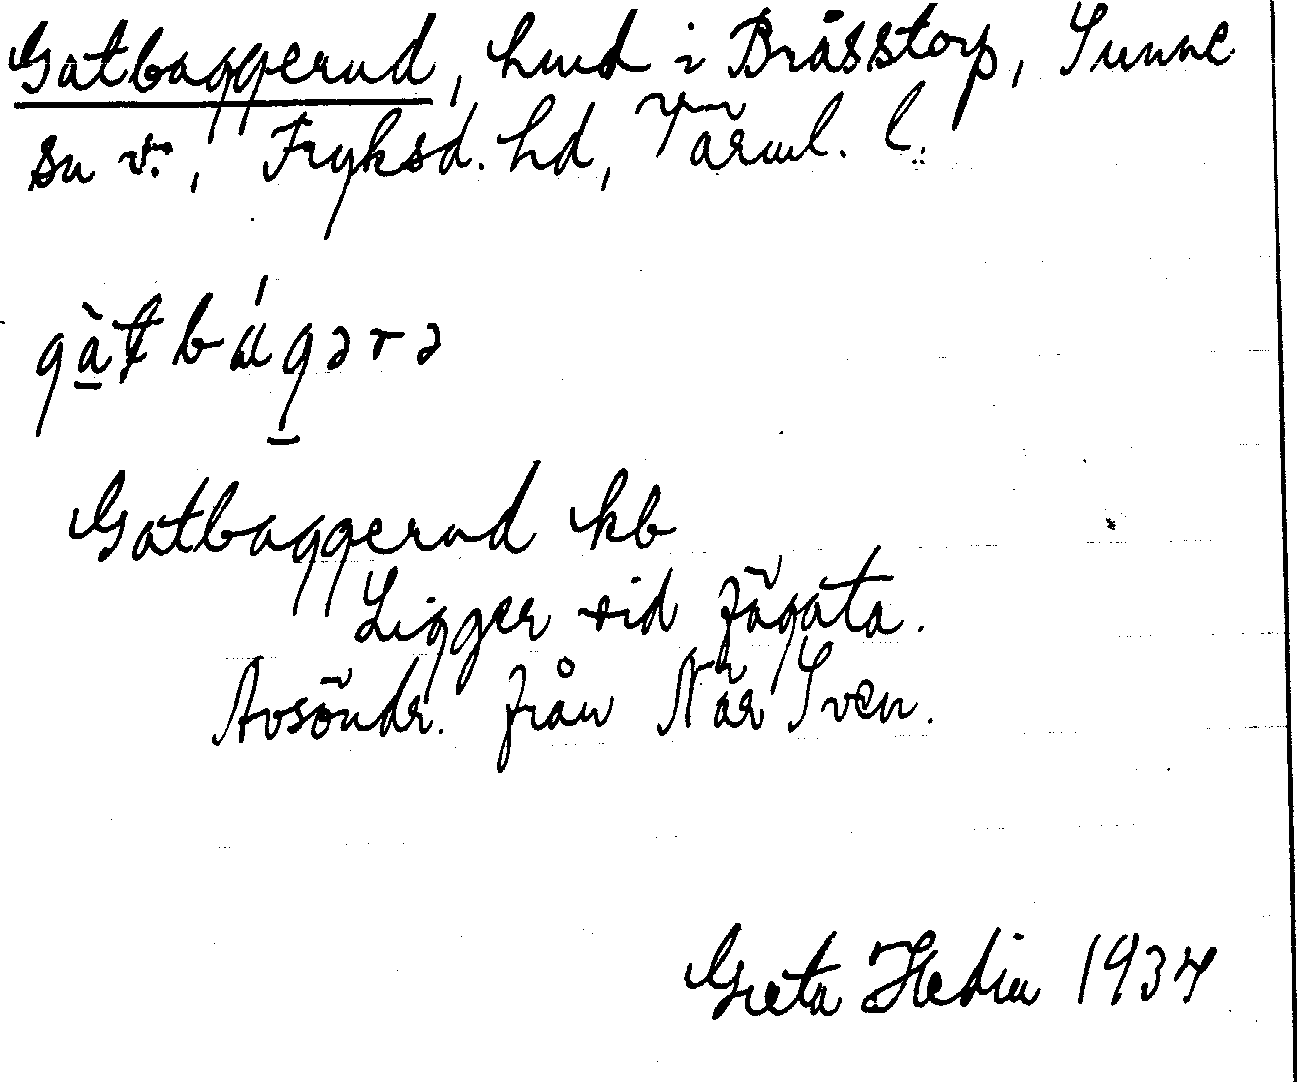 Gatbaggerud, hmd i Bråsstorp, Sunne
sn v., Fryksd. hd, Värml. l.
gàt bágərə
Gatbaggerud kb
Ligger vid fägata.
Avsöndr. från När Sven.
Greta Hedin 1934